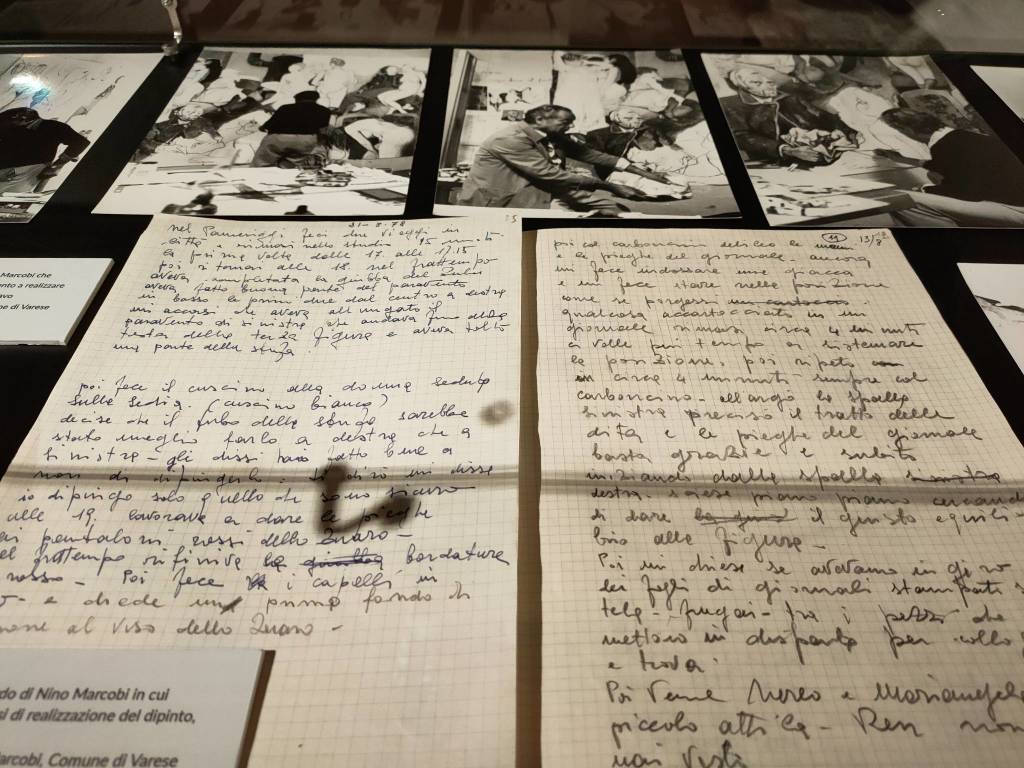 Marcobi che
nto a realizzare
avo
ne di Varese
31-8-78
nel Pomeriggio feci due viaggi in
città e rimasi nello studio 15 m.
la prima volta dalle 17. alle 17.15
poi si tornai alle 18. nel frattempo
aveva completata la giubba del
aveva fatto buona parte del paravento
in basso le prime due dal centro a destra
mi accorsi che aveva allungato il
paravento di sinistra che andava fino alla
testa della terza figura e aveva tolto
una parte della stufa.
poi fece il cuscino alla donna seduta
sulla sedia. (cuscino bianco)
decise che il tubo della stufa sarebbe
stato meglio farlo a destra che a
sinistra - gli dissi hai fatto bene a
non di dipingerlo. mi disse
io dipingo solo quello che sono sicuro
alle 19. lavorava a dare le pieghe
ai pantaloni rossi dello Zuavo -
nel frattempo rifiniva la bordatura
rossa - Poi fece i capelli in
e diede una prima fondo di
al viso dello Zuavo -
11 13/8
poi col carboncino delineò le mani
e le pieghe del giornale. ancora
mi fece indossare una giacca
e mi fece stare nella posizione
come se porgessi un cartoccio
qualcosa accartocciato in un
giornale rimasi circa 4 minuti
a volte più tempo a sistemare
la posizione, poi ripeto
in circa 4 minuti sempre col
carboncino - allargò la spalla
sinistra precisò il tratto delle
dita e le pieghe del giornale
basta grazie e subito
iniziando dalla spalla sinistra
destra - scese piano piano cercando
di dare il giusto equili-
brio alla figura -
Poi mi chiese se avevamo in giro
dei fogli di giornali stampati s
tela - frugai - fra i pezzi che
mettevo in disparte per collo
e trovai
Poi venne Nereo e Mariangela
piccolo attico - Ren non
mai visto
do di Nino Marcobi in cui
si di realizzazione del dipinto,
Marcobi, Comune di Varese